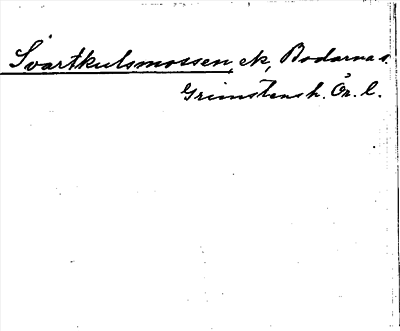 Svartkulsmossen, ek, Bodarna s.
Grimstensh. Ör. l.